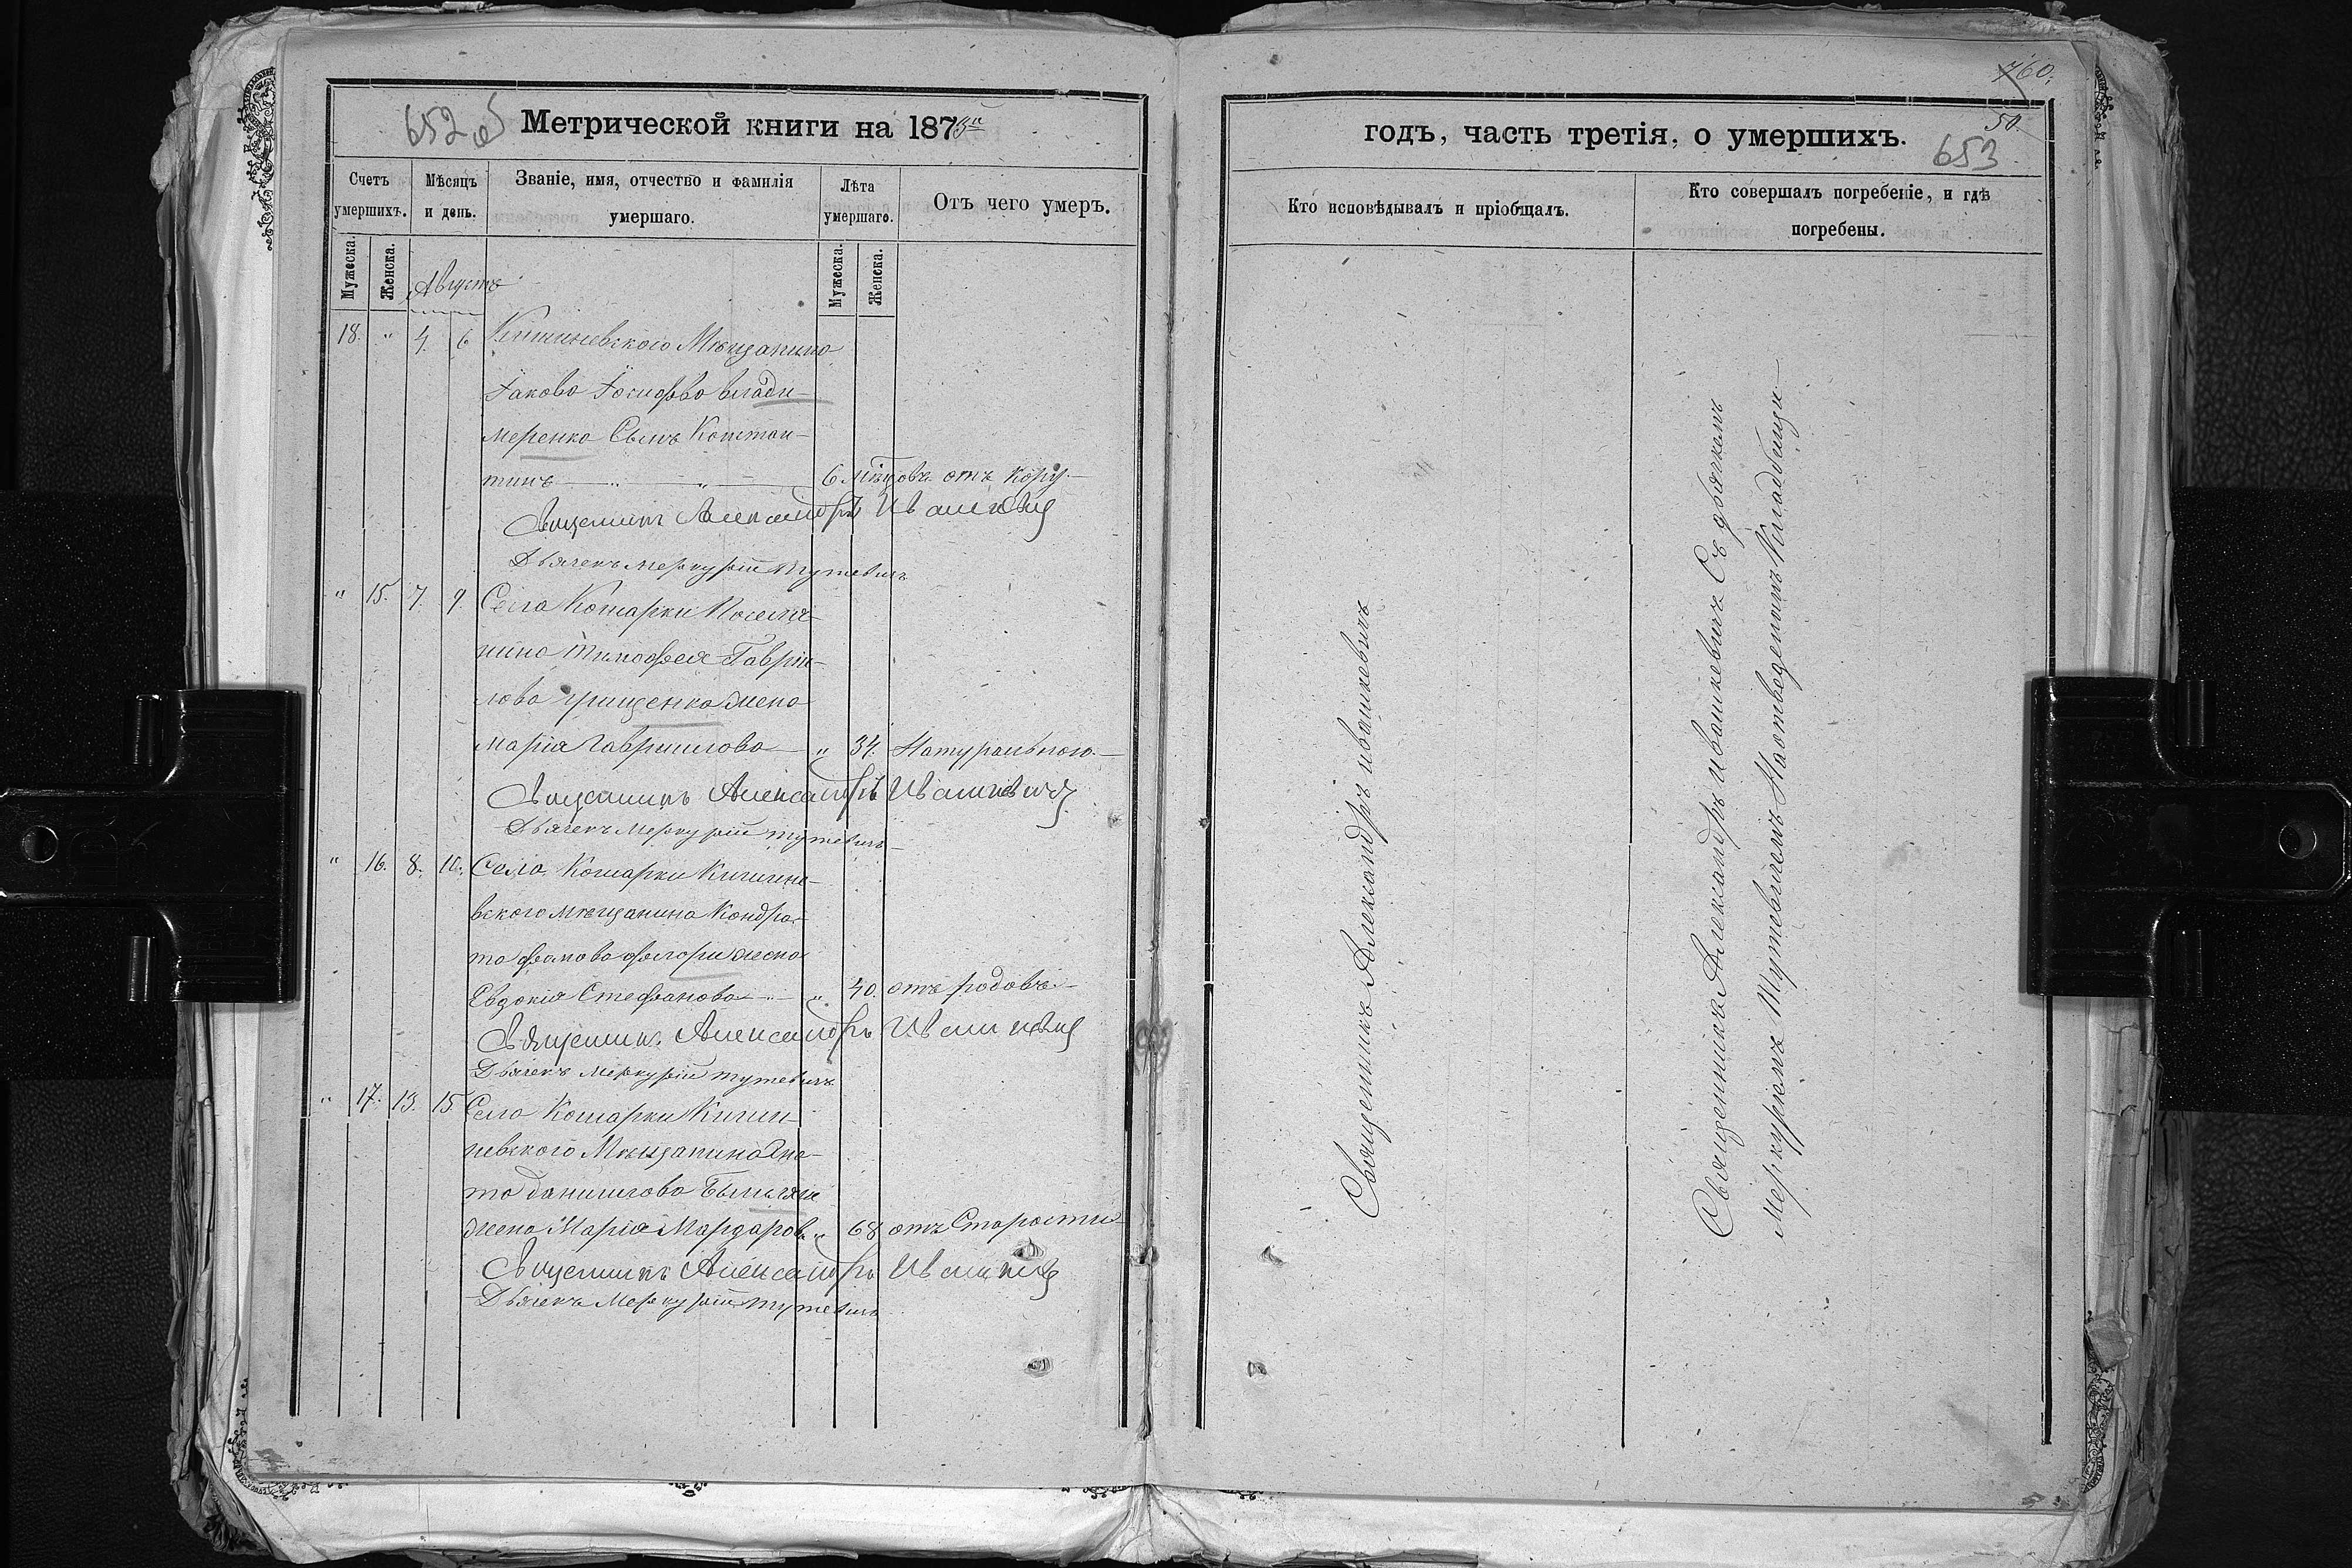 652об
Метрической книги на 1873й
Счетъ умершихъ.
Мѣсяцъ и день.
Званіе, имя, отчество и фамилія умершаго.
Лѣта умершаго.
Отъ чего умеръ.
Мужеска.
Женска.
Августъ
Мужеска.
Женска.
18. " 4. 6 Кишиневского Мѣщанина
Іакова Іосифова Влади-
меренка Сынъ Констан-
тинъ 6 мѣцовъ отъ Кору.
Священникъ Александръ Ивашкевич
Дьячекъ Меркурій Тутевичъ
" 15. 7. 9. Села Кошарки Поселя-
нина Тимофея Гаврии-
лова Грищенка жена
Марія Гавриилова " 34. Натурального.
Священникъ Александръ Ивашкевич
Дьячекъ Меркурій Тутевичъ
" 16. 8. 10. Села Кошарки Кишине-
вского мѣщанина Кондра-
та жена
Евдокія Стефанова " 40. отъ родовъ
Священникъ Александръ Ивашкевич
Дьячекъ Меркурій Тутевичъ
" 17. 13. 15. Села Кошарки Кишин-
невского Мѣщанина Игна-
та Данилова
жена Марія " 68 отъ Старости
Священникъ Александръ Ивашкевич
Дьячекъ Меркурій Тутевичъ
760.
50.
653
годъ, часть третія, о умершихъ.
Кто исповѣдывалъ и пріобщалъ.
Кто совершалъ погребеніе, и гдѣ погребены.
Священникъ Александръ Ивашкевичъ
Священникъ Александръ Ивашкевичъ Съ дьячкомъ
Меркуріемъ Тутевичемъ На отведенномъ Кладбищи